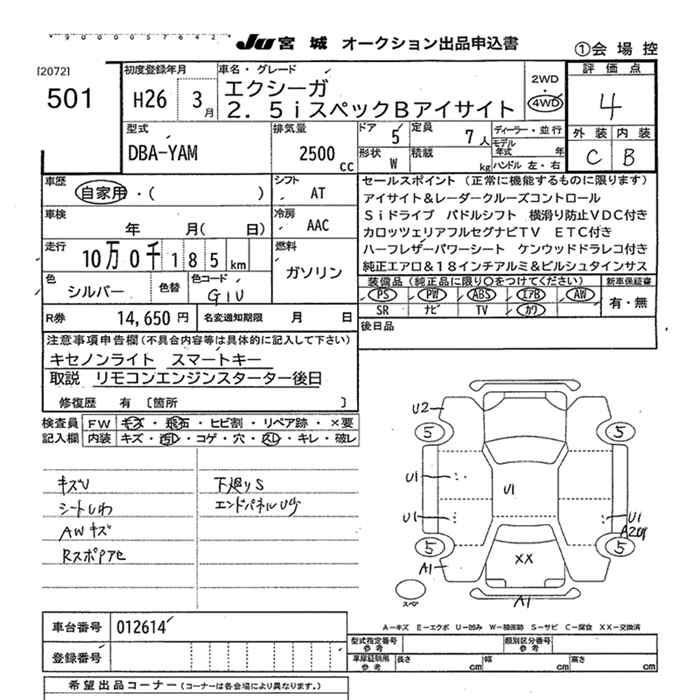 9000057642
JU 宮城 オークション出品申込書
①会場控
[2072]
501
初度登録年月
H26 3月
車名・グレード
エクシーガ
2.5iスペックBアイサイト
2WD
・
4WD
評価点
4
外装 内装
C B
型式
DBA-YAM
排気量
2500 cc
ドア 5
定員 7人
形状 W
積載 kg
ディーラー・並行
モデル年式 年
ハンドル 左・右
車歴
自家用・( )
シフト AT
車検
年 月( 日)
冷房 AAC
走行
10万0千185km
燃料
ガソリン
色
シルバー
色替
色コード
G1U
R券 14,650円
名変通知期限 月 日
セールスポイント (正常に機能するものに限ります)
アイサイト&レーダークルーズコントロール
Siドライブ パドルシフト 横滑り防止VDC付き
カロッツェリアフルセグナビTV ETC付き
ハーフレザーパワーシート ケンウッドドラレコ付き
純正エアロ&18インチアルミ&ビルシュタインサス
装備品(純正品に限り○をつけてください)
新車保証書
PS PW ABS エアB AW
SR ナビ TV カワ
有・無
後日品
注意事項申告欄(不具合内容等は具体的に記入して下さい)
キセノンライト スマートキー
取説 リモコンエンジンスターター後日
修復歴 有 [箇所 ]
検査員記入欄
FW キズ・飛石・ヒビ割・リペア跡・×要
内装 キズ・ ・コゲ・穴・ ・キレ・破レ
キズU
シートしわ
AWキズ
下廻りS
エンドパネルUS
U2
5
5
U1
U1
U1
U1
5
5
A1
XX
A1
スペア
A-キズ E-エクボ U-凹み W-補修跡 S-サビ C-腐食 XX-交換済
車台番号 012614
登録番号
型式指定番号 参考
類別区分番号 参考
車庫証明用 参考
長さ cm 幅 cm 高さ cm
希望出品コーナー(コーナーは各会場により異なります。)